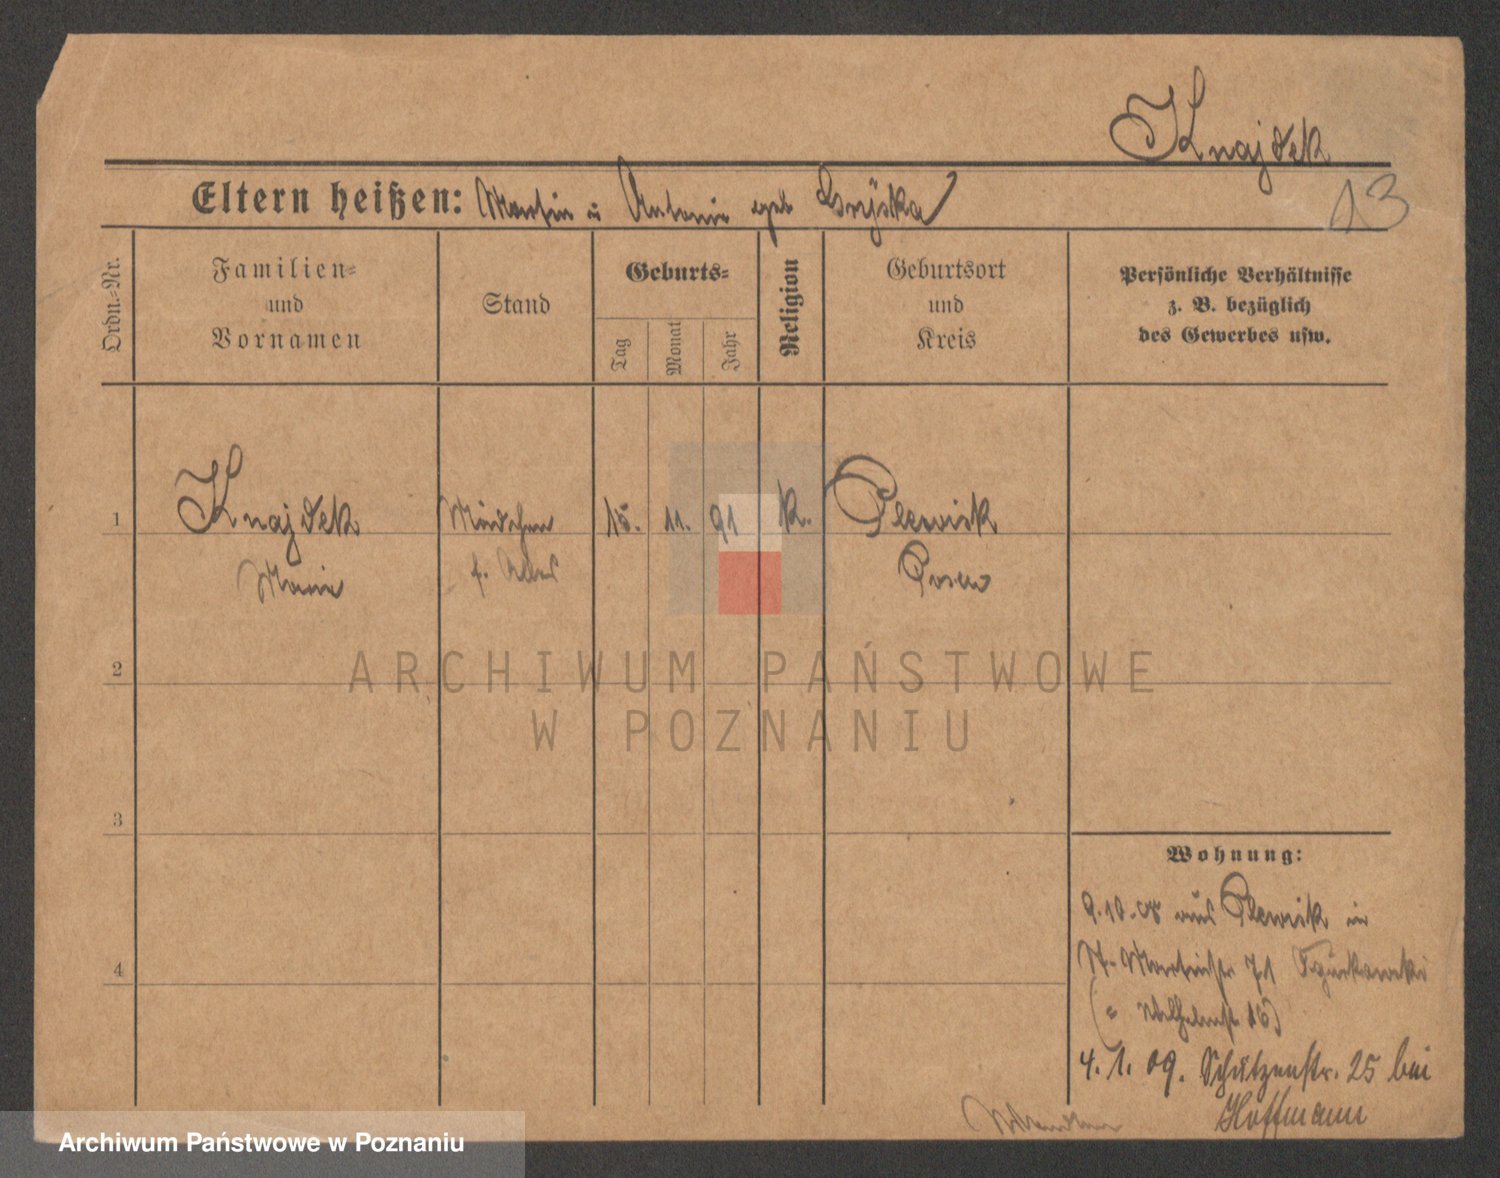 Knajdek
13
Eltern heißen: Martin u Antonie geb
Ordn.-Nr.
Familien-
und
Vornamen
Stand
Geburts-
Tag
Monat
Jahr
Religion
Geburtsort
und
Kreis
Persönliche Verhältnisse
z. B. bezüglich
des Gewerbes usw.
1
Knajdek Mädchen 15. 11. 91 k. Plewisk
Marie f. Alles Posen
2
3
4
Wohnung:
9.10.08 aus Plewisk in
St. Martinstr 71
Wilhelmst 16)
4. 1. 09. Schützenstr. 25 bei
Hoffmann
ARCHIWUM PAŃSTWOWE
W POZNANIU
Archiwum Państwowe w Poznaniu